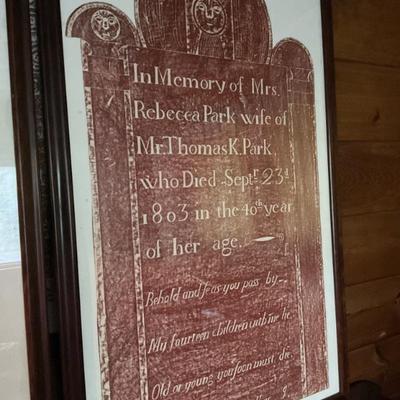 In Memory of Mrs.
Rebecca Park wife of
Mr. Thomas K. Park,
who Died Septr. 23d
1803 in the 40th year
of her age.
Behold and se as you pass by
My fourteen children with me lie
Old or young you soon must die